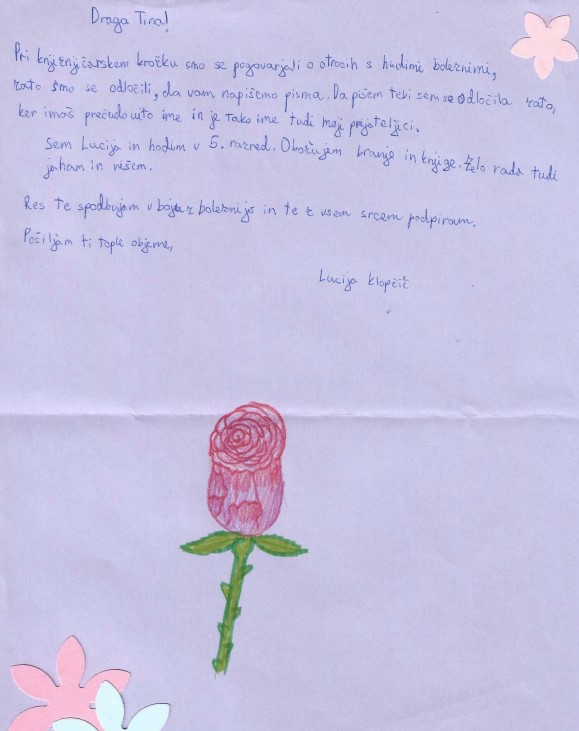 Draga Tina!
Pri knjižničarskem krožku smo se pogovarjali o otrocih s hudimi boleznimi,
zato smo se odločili, da vam napišemo pisma. Da pišem tebi sem se odločila zato,
ker imaš prečudovito ime in je tako ime tudi moji prijateljici.
Sem Lucija in hodim v 5. razred. Obožujem branje in knjige. Zelo rada tudi
jaham in rišem.
Res te spodbujam v boju z boleznijo in te z vsem srcem podpiram.
Pošiljam ti tople objeme,
Lucija Klopčič